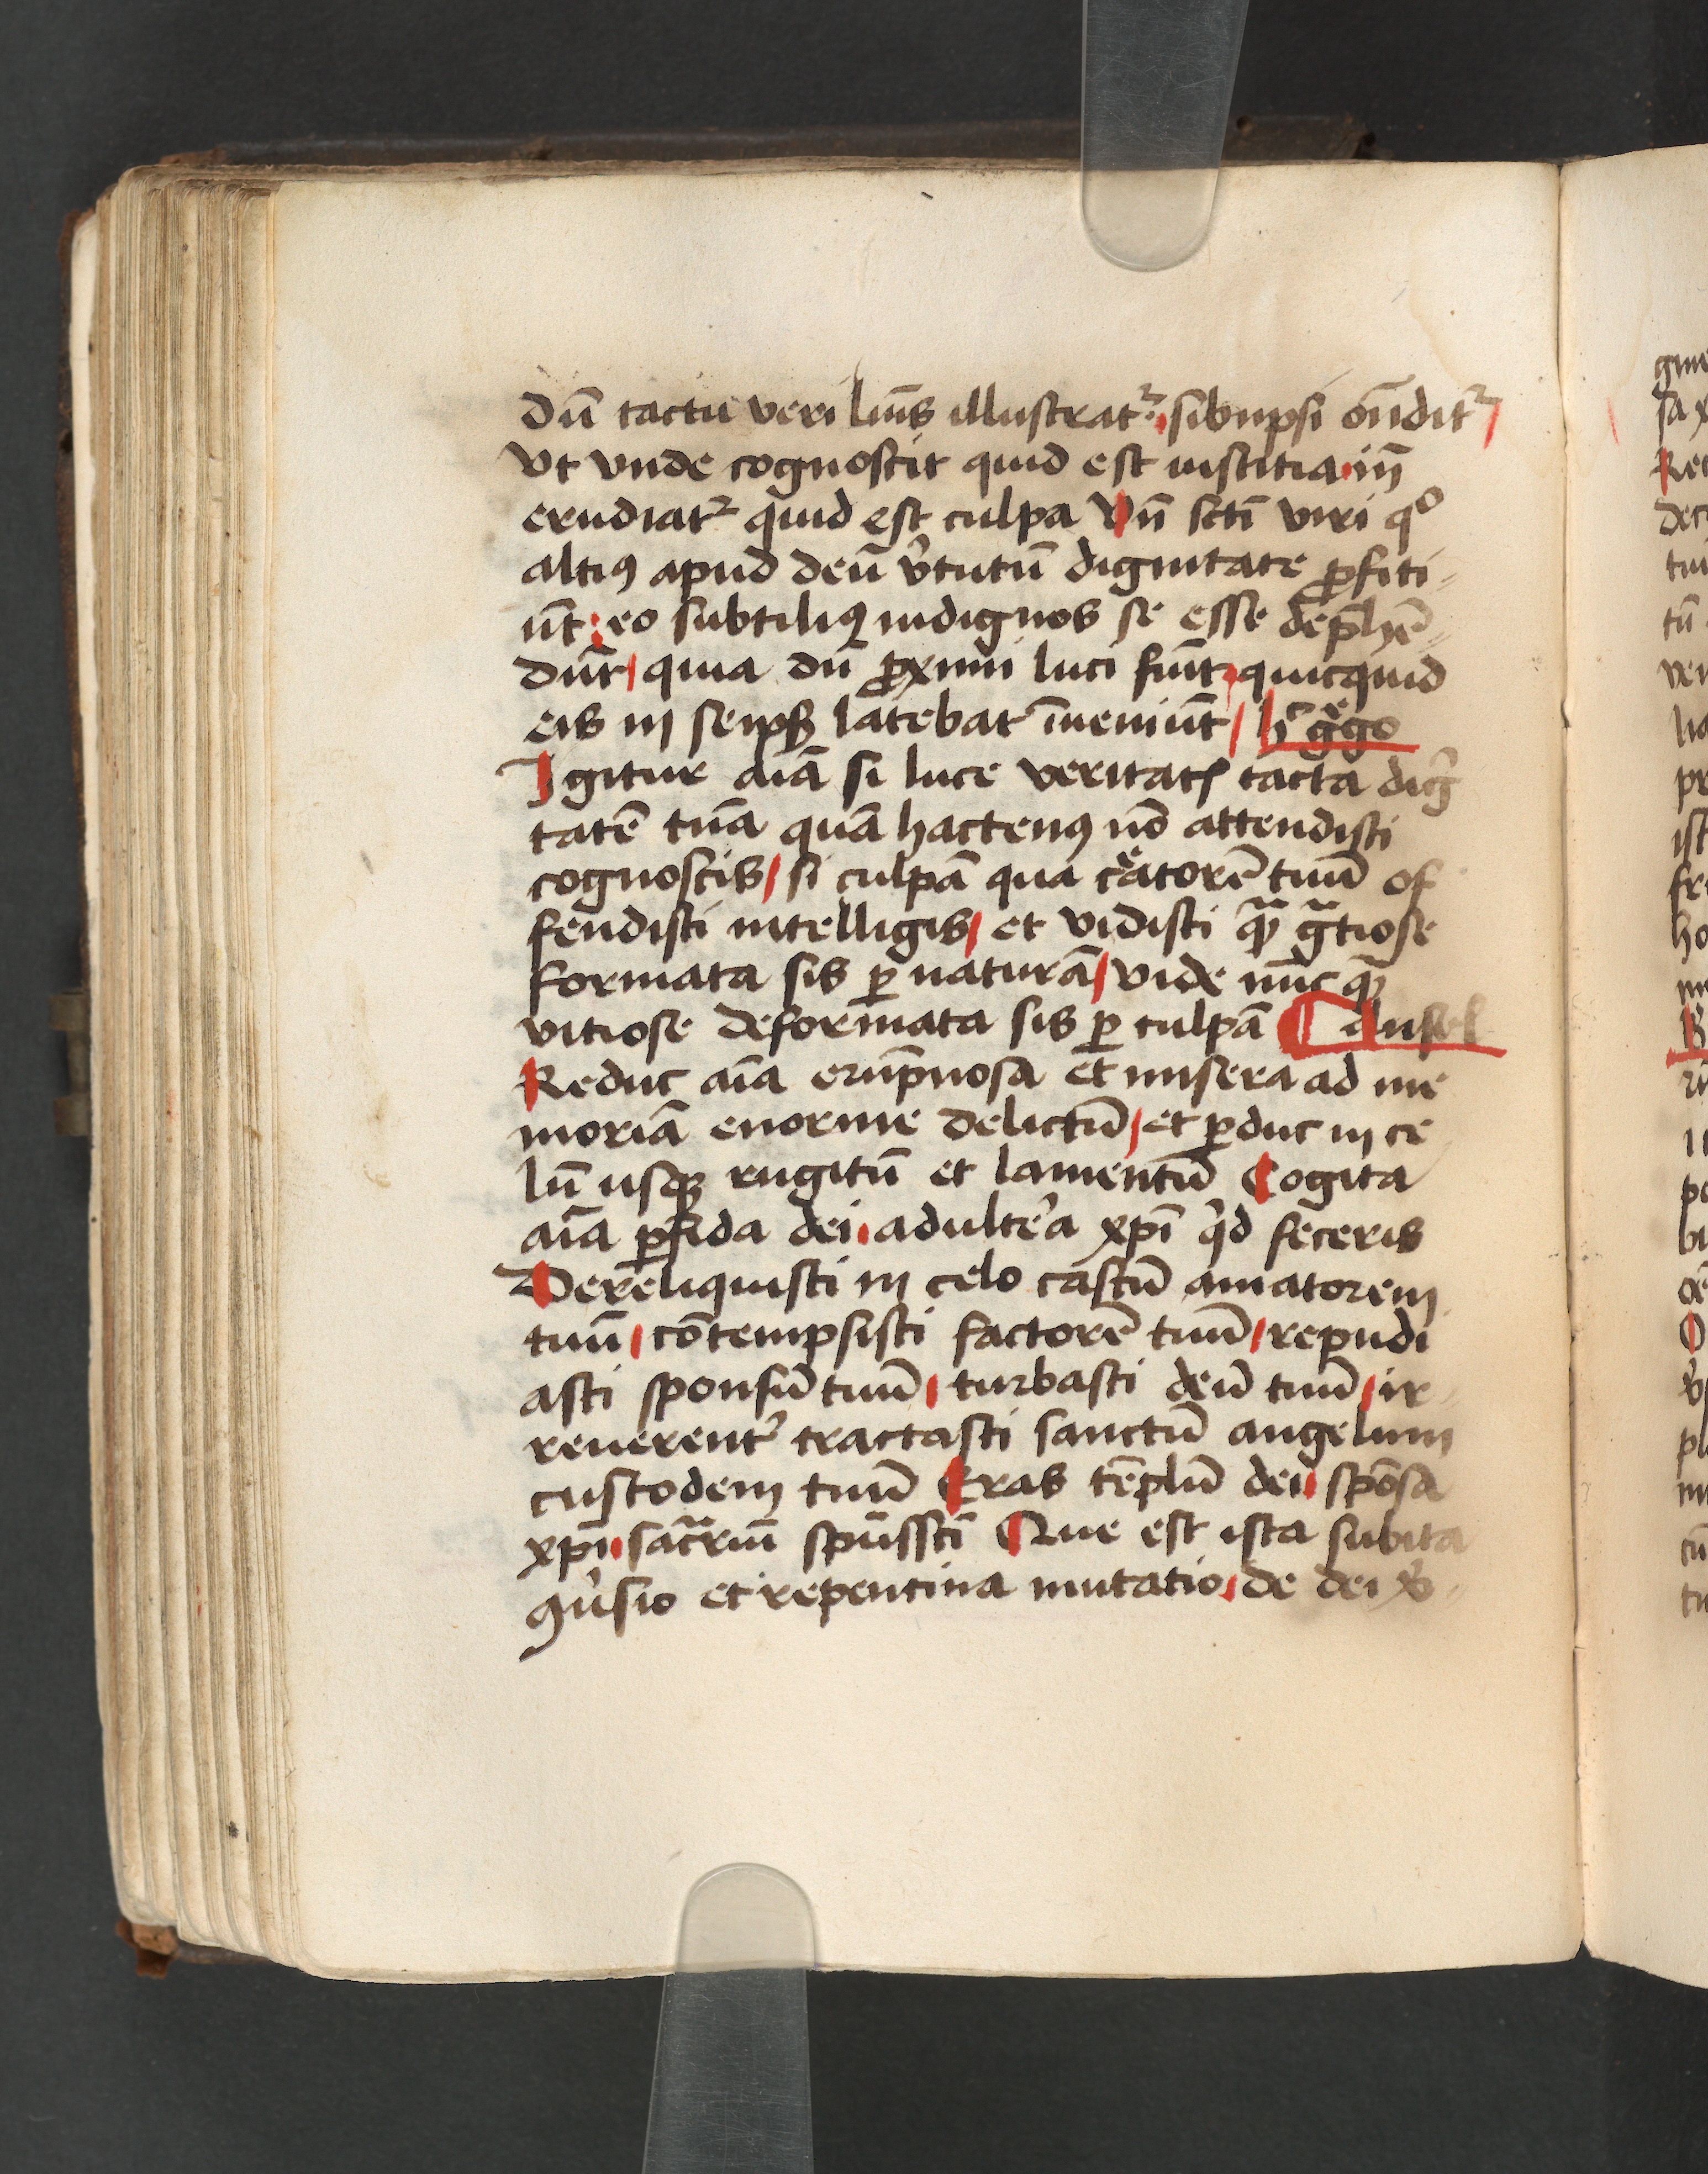 Dū tactu veri luīs illustrat᷑ sibiipsi ōndit᷑
vt vnde cognoscit quid est iusticia in̄
erudiat᷑ quid est culpa Vn̄ scti viri qͦ
altiꝯ apud deū v̓tutū dignitate ꝓfiti-
ūt eo subtiliꝯ indignos se esse dep̄hē-
dūt quia dū ꝓximi luci fiūt quicquid
eis in seipꝫ latebat īueniūt hͨ gͤgo
Igitur aīa si luce veritatꝭ tacta dig̓
tatē tuā quā hactenꝯ nō attendisti
cognoscis si culpā qua cͤatorē tuū of
fendisti intelligis et vidisti qͣꝫ gͣtiose
formata sis ꝑ naturā vide nūc qͣꝫ
vitiose deformata sis ꝑ culpā Ansel
Reduc aīa erūpnosa et misera ad me
moriā enorme delictū et ꝑduc in ce
lū usqꝫ rugitū et lamentū Cogita
aīa ꝑfida dei adult̓a xp̄i qͥd feceris
Dereliquisti in celo castū amatorem
tuū cōtempsisti factorē tuū repudi
asti sponsū tuū turbasti deū tuū ir-
reuerent̓ tractasti sanctū angelum
custodem tuū Eras tēplū dei spōsa
xp̄i sacͣriū spūssc̄i Que est ista subita
ꝯu̓sio et repentina mutatio de dei v̓-